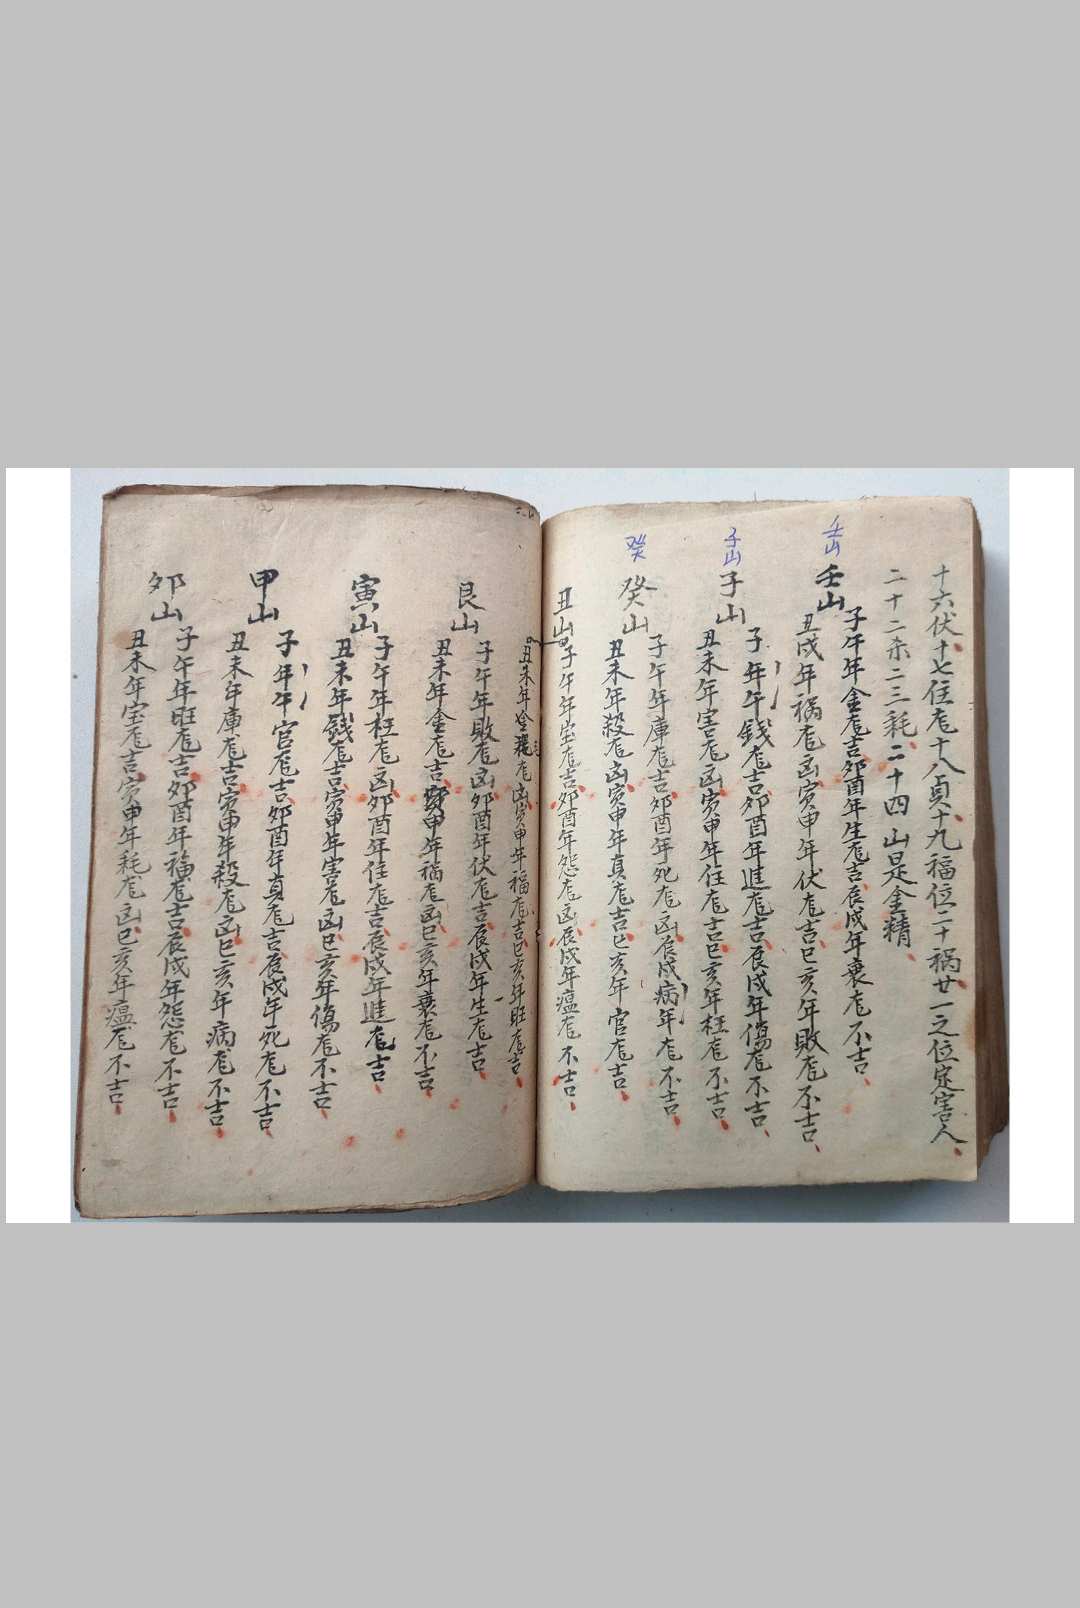 十六伏十七住㐌十八貞十九福位二十禍廿一之位定害人
二十二杀二三耗二十四山是金精
壬山
壬山
子午年金㐌吉夘酉年生㐌吉辰戌年衰㐌不吉
丑戌年禍㐌凶寅申年伏㐌吉巳亥年敗㐌不吉
子山
子山
子年午錢㐌吉夘酉年進㐌吉辰戌年傷㐌不吉
丑未年害㐌凶寅申年住㐌吉巳亥年枉㐌不吉
癸
癸山
子午年庫㐌吉夘酉年死㐌凶辰戌病年㐌不吉
丑未年殺㐌凶寅申年真㐌吉巳亥年官㐌吉
丑山
子午年宝㐌吉夘酉年怨㐌凶辰戌年瘟㐌不吉
丑未年耗㐌凶寅申年福㐌吉巳亥年旺㐌吉
艮山
子午年敗㐌凶夘酉年伏㐌吉辰戌年生㐌吉
丑未年金㐌吉寅申年禍㐌凶巳亥年衰㐌不吉
寅山
子午年枉㐌凶夘酉年住㐌吉辰戌年進㐌吉
丑未年錢㐌吉寅申年害㐌凶巳亥年傷㐌不吉
甲山
子年午官㐌吉夘酉年真㐌吉辰戌年死㐌不吉
丑未年庫㐌吉寅申年殺㐌凶巳亥年病㐌不吉
夘山
子午年旺㐌吉夘酉年福㐌吉辰戌年怨㐌不吉
丑未年宝㐌吉寅申年耗㐌凶巳亥年瘟㐌不吉